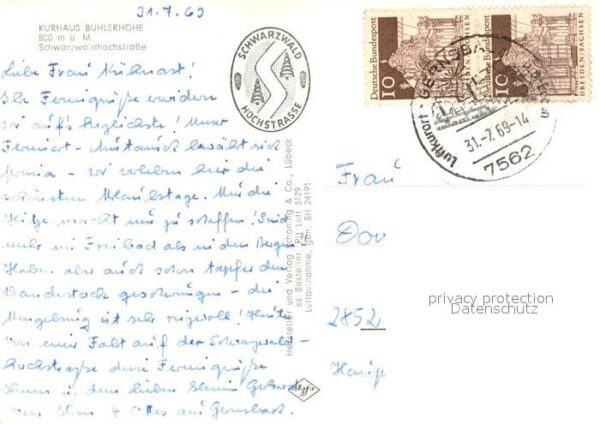 31.7.69
KURHAUS BÜHLERHÖHE
800 m ü. M.
Schwarzwaldhochstraße
Liebe Frau
Ihre Feriengrüße erwidern
wir auf's herzlichste! Unser
Ferienort - Austausch bewährt sich
prima - wir verleben hier die
schönsten Urlaubstage. Nur die
Hitze macht uns zu schaffen! Sind
mehr im Freibad als in den Bergen!
Haben aber auch schon tapfer den
Wanderstock geschwungen - die
Umgebung ist sehr reizvoll! Heute
von einer Fahrt auf der Schwarzwald-
hochstrasse diese Feriengrüße
Ihnen u. dem lieben
von Ihren 4 aus Gernsbach.
SCHWARZWALD
HOCHSTRASSE
Hersteller und Verlag Schöning & Co., Lübeck
ss Bestellnr. Pü Luft 5129
Luftaufnahme, gen. SH 24191
Deutsche Bundespost
10
DRESDEN/SACHSEN
10
DRESDEN/SACHSEN
Luftkurort GERNSBACH
31.-7.69-14
7562
Frau
Dov
2852
privacy protection
Datenschutz